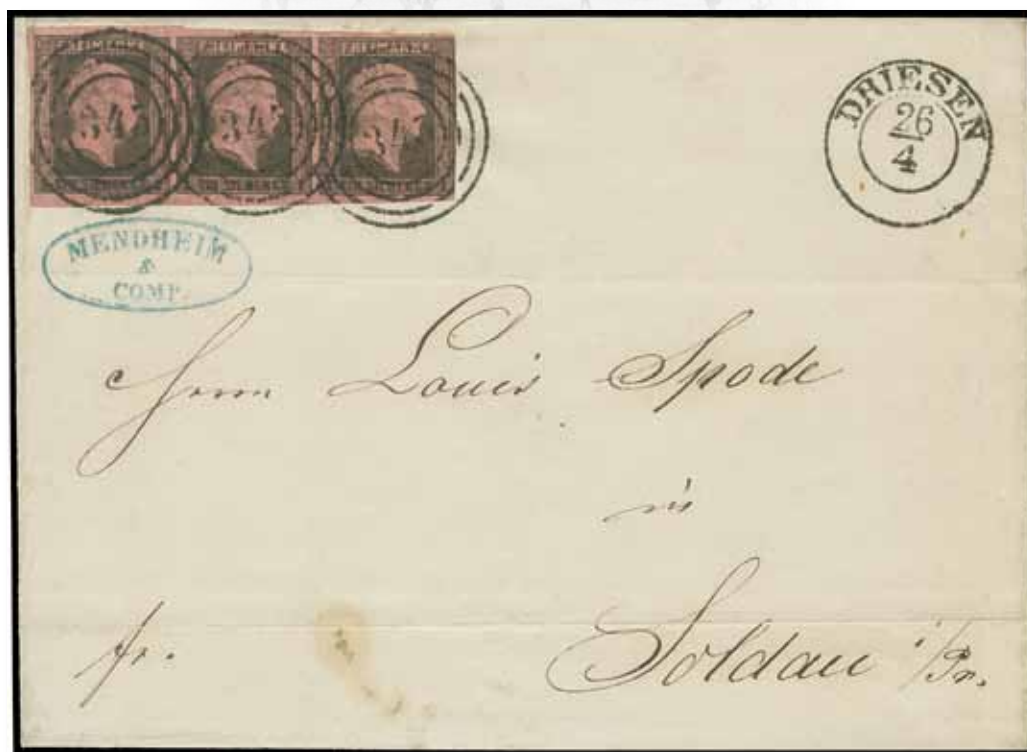 FREIMARKE FREIMARKE FREIMARKE
34 34 34
DRIESEN
26
4
MENDHEIM
&
COMP.
Herrn Louis Spode
in
fr. Soldau i/Pr.